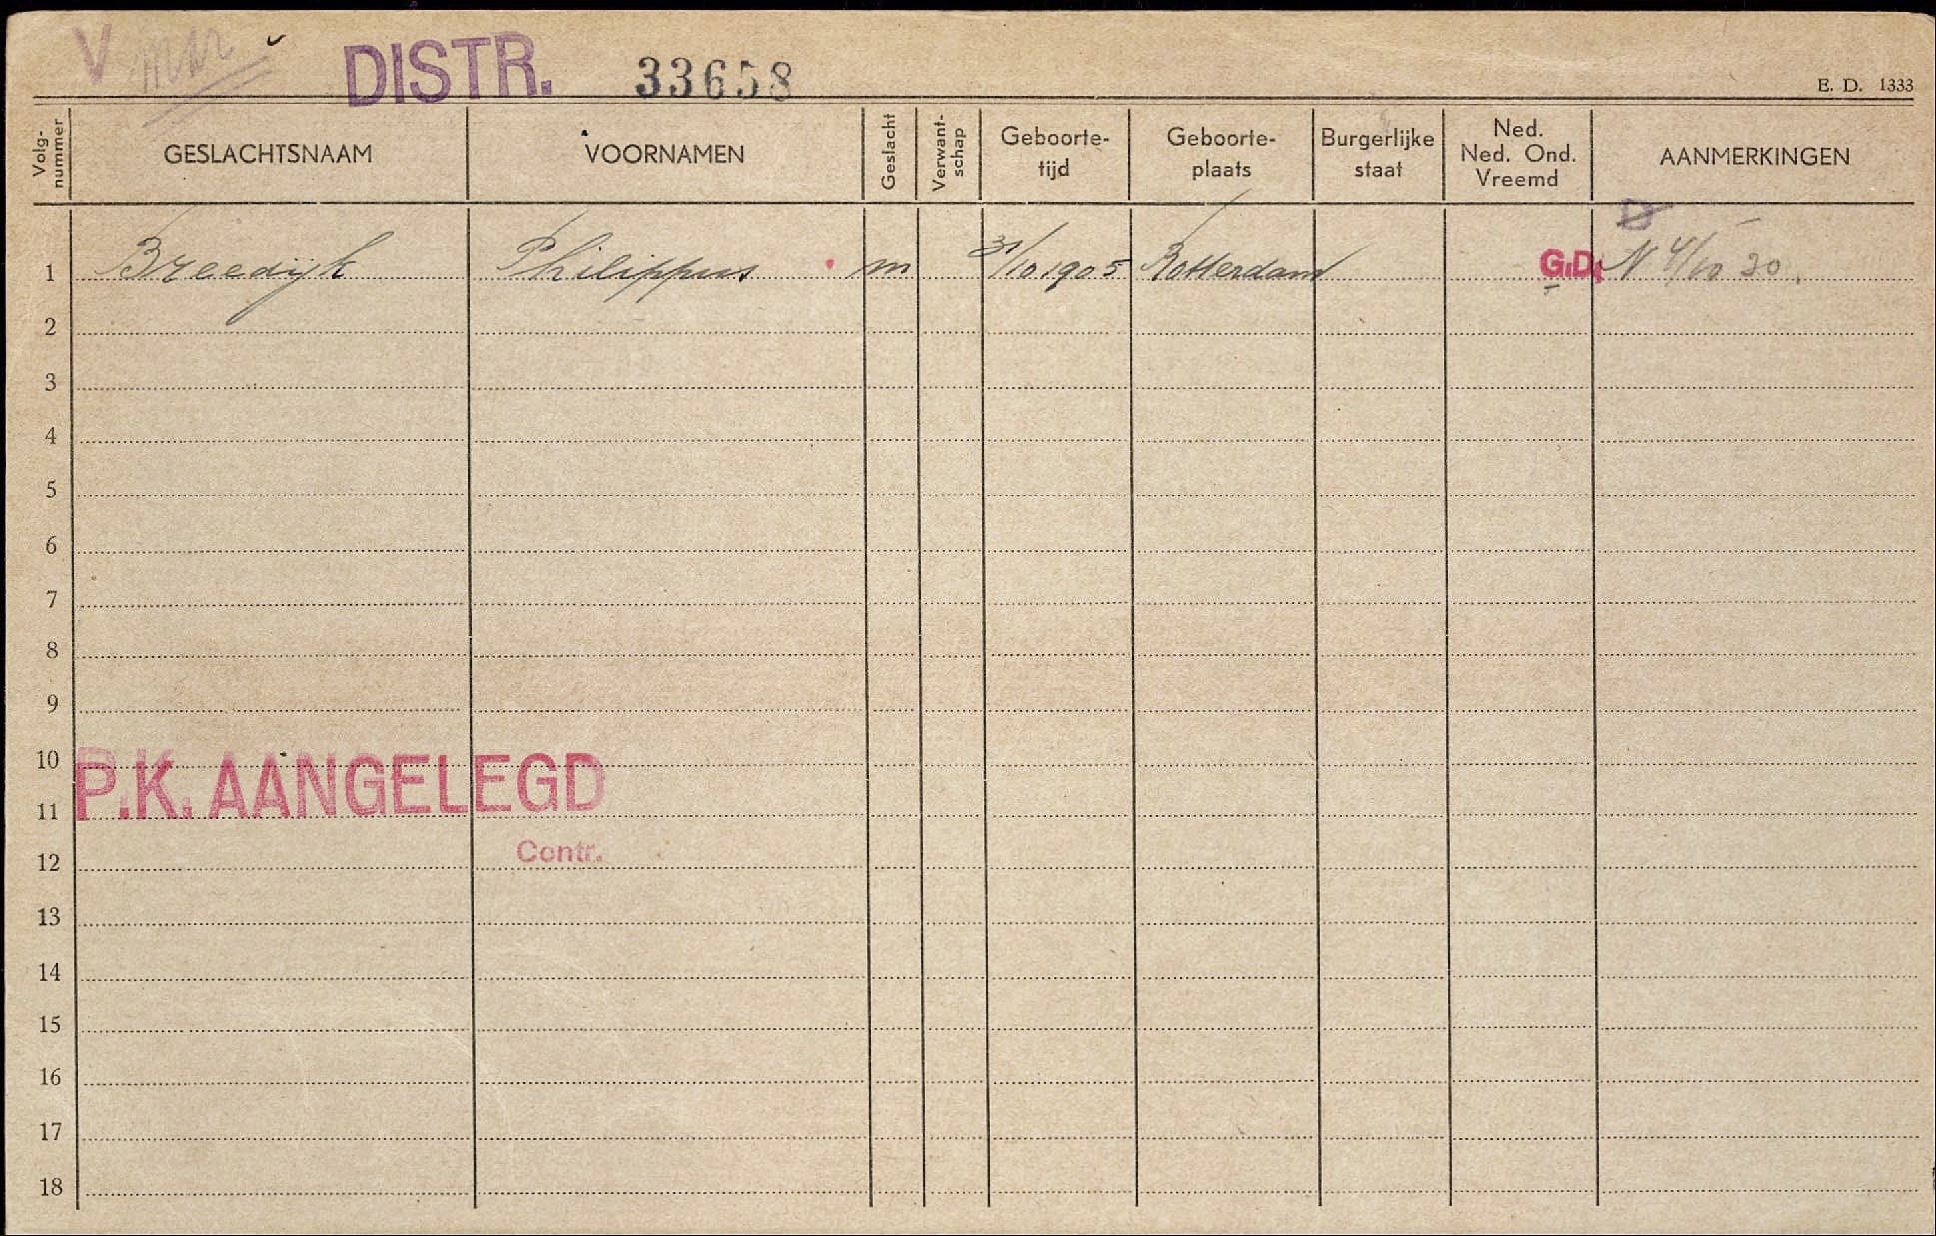 V
DISTR. 33658
E. D. 1333
Volg-nummer GESLACHTSNAAM VOORNAMEN Geslacht Verwant-schap Geboorte-tijd Geboorte-plaats Burgerlijke staat Ned. Ned. Ond. Vreemd AANMERKINGEN
D
1 Breedijk Philippus m 31/10 1905 Rotterdam G.D. N 4/10 30.
2
3
4
5
6
7
8
9
10
P.K. AANGELEGD
11
Contr.
12
13
14
15
16
17
18